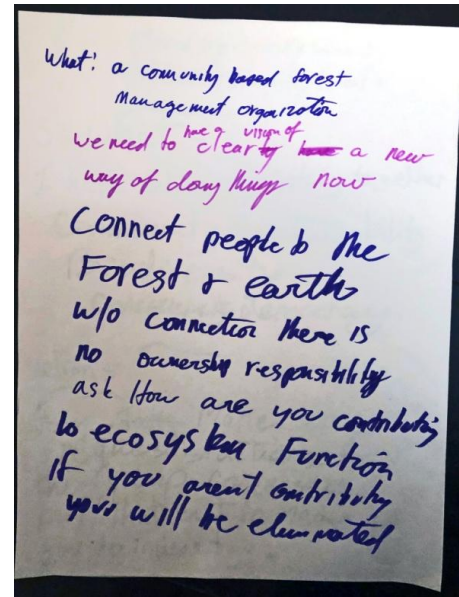 What: a comunity based forest
Management organization
have a vision of
we need to clearly a new
way of doing things now
Connect people to the
Forest & earth
w/o connection there is
no ownership responsibility
ask How are you contributing
to ecosystem Function
If you arent contributing
you will be eliminated